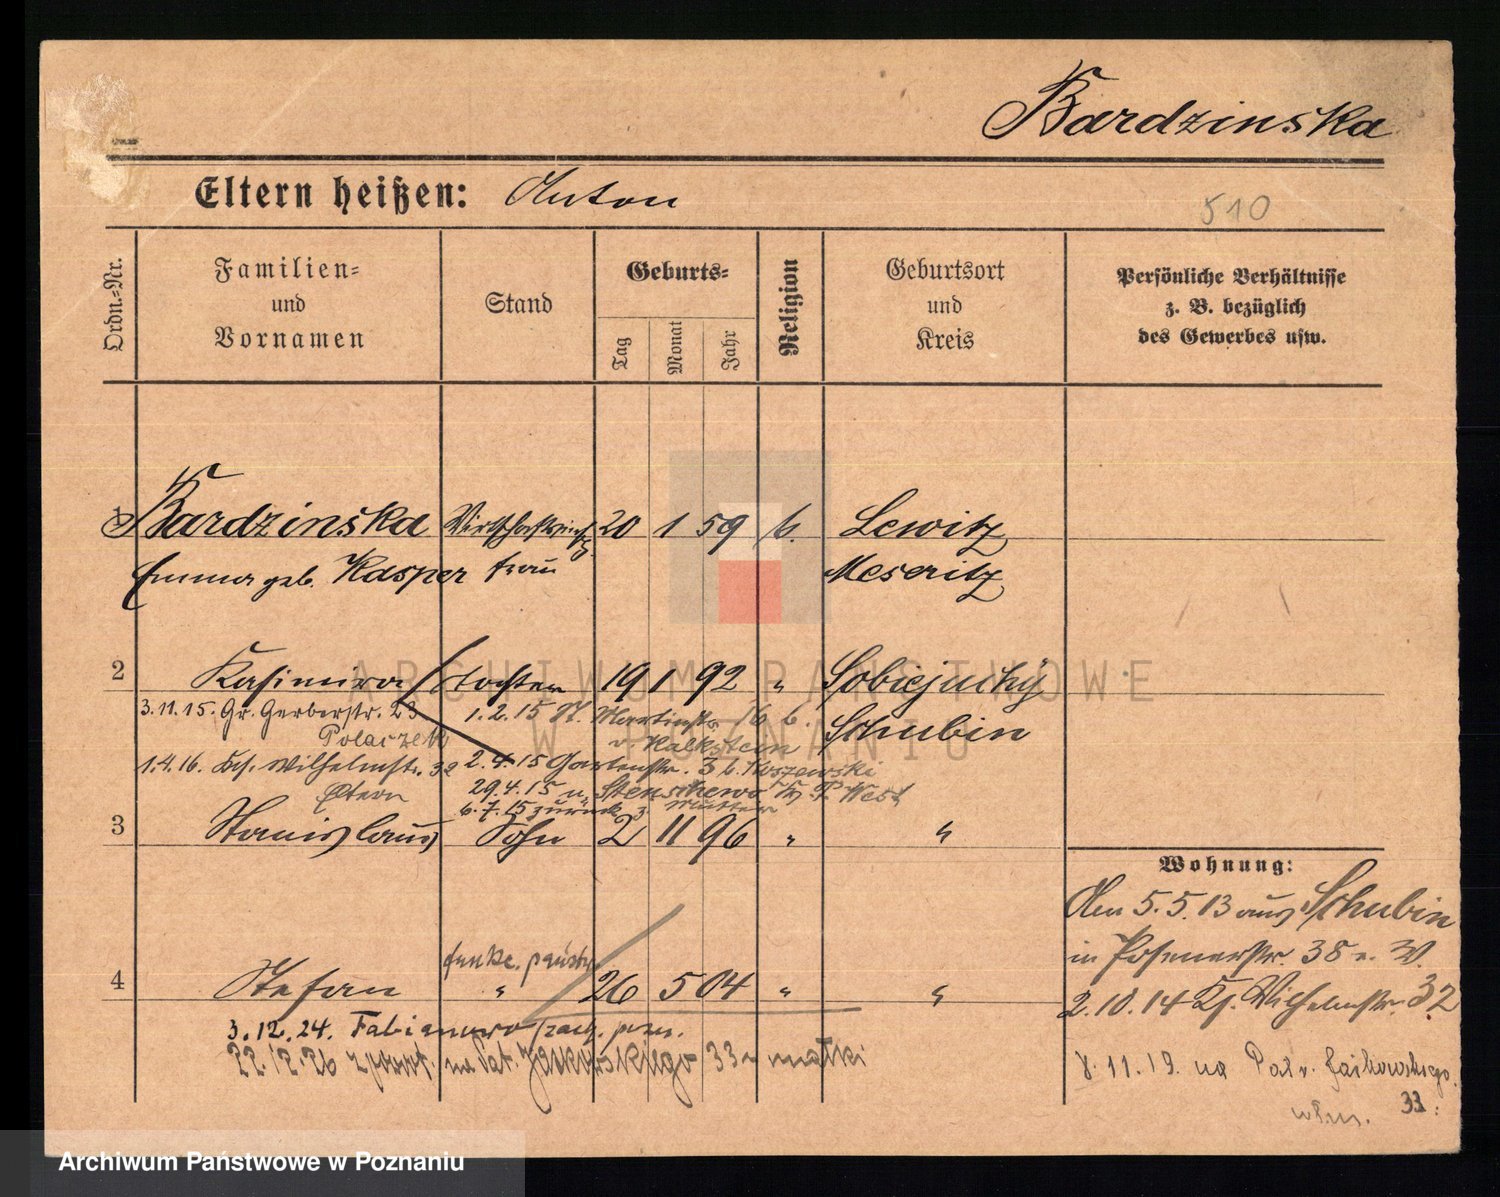 Bardzinska
Eltern heißen: Anton
510
Ordn.=Nr.
Familien=
und
Vornamen
Stand
Geburts=
Tag
Monat
Jahr
Religion
Geburtsort
und
Kreis
Persönliche Verhältnisse
z. B. bezüglich
des Gewerbes usw.
1 Bardzinska 20 1 59 k. Lewitz
Emma geb. Kasper frau Meseritz
2 Kasimira Tochter 19 1 92 " Sobiejuchy
Schubin
3.11.15. Gr. Gerberstr. 23
Polaszek
1.2.15 St. Martinstr. 16 b.
v. Kalkstein
1.4.16. Ks. Wilhelmstr. 32
Eltern
2.4.15 Gartenstr. 3 b. Koszewski
29.4.15 n. Stenschewo Kr. P. West
6.7.15 zurück z. Mutter
3 Stanislaus Sohn 2 11 96 " "
4 Stefan " 26 5 04 " "
3.12.24. Fabianowo
22.12.26 z powrt. na Pat. Jackowskiego 33 matki
Wohnung:
Den 5.5.13 aus Schubin
in Posenerstr. 38 e. W.
2.10.14 Ks. Wilhelmstr. 32
8.11.19. na Patr. Jackowskiego
33.
ARCHIWUM PAŃSTWOWE
W POZNANIU
Archiwum Państwowe w Poznaniu